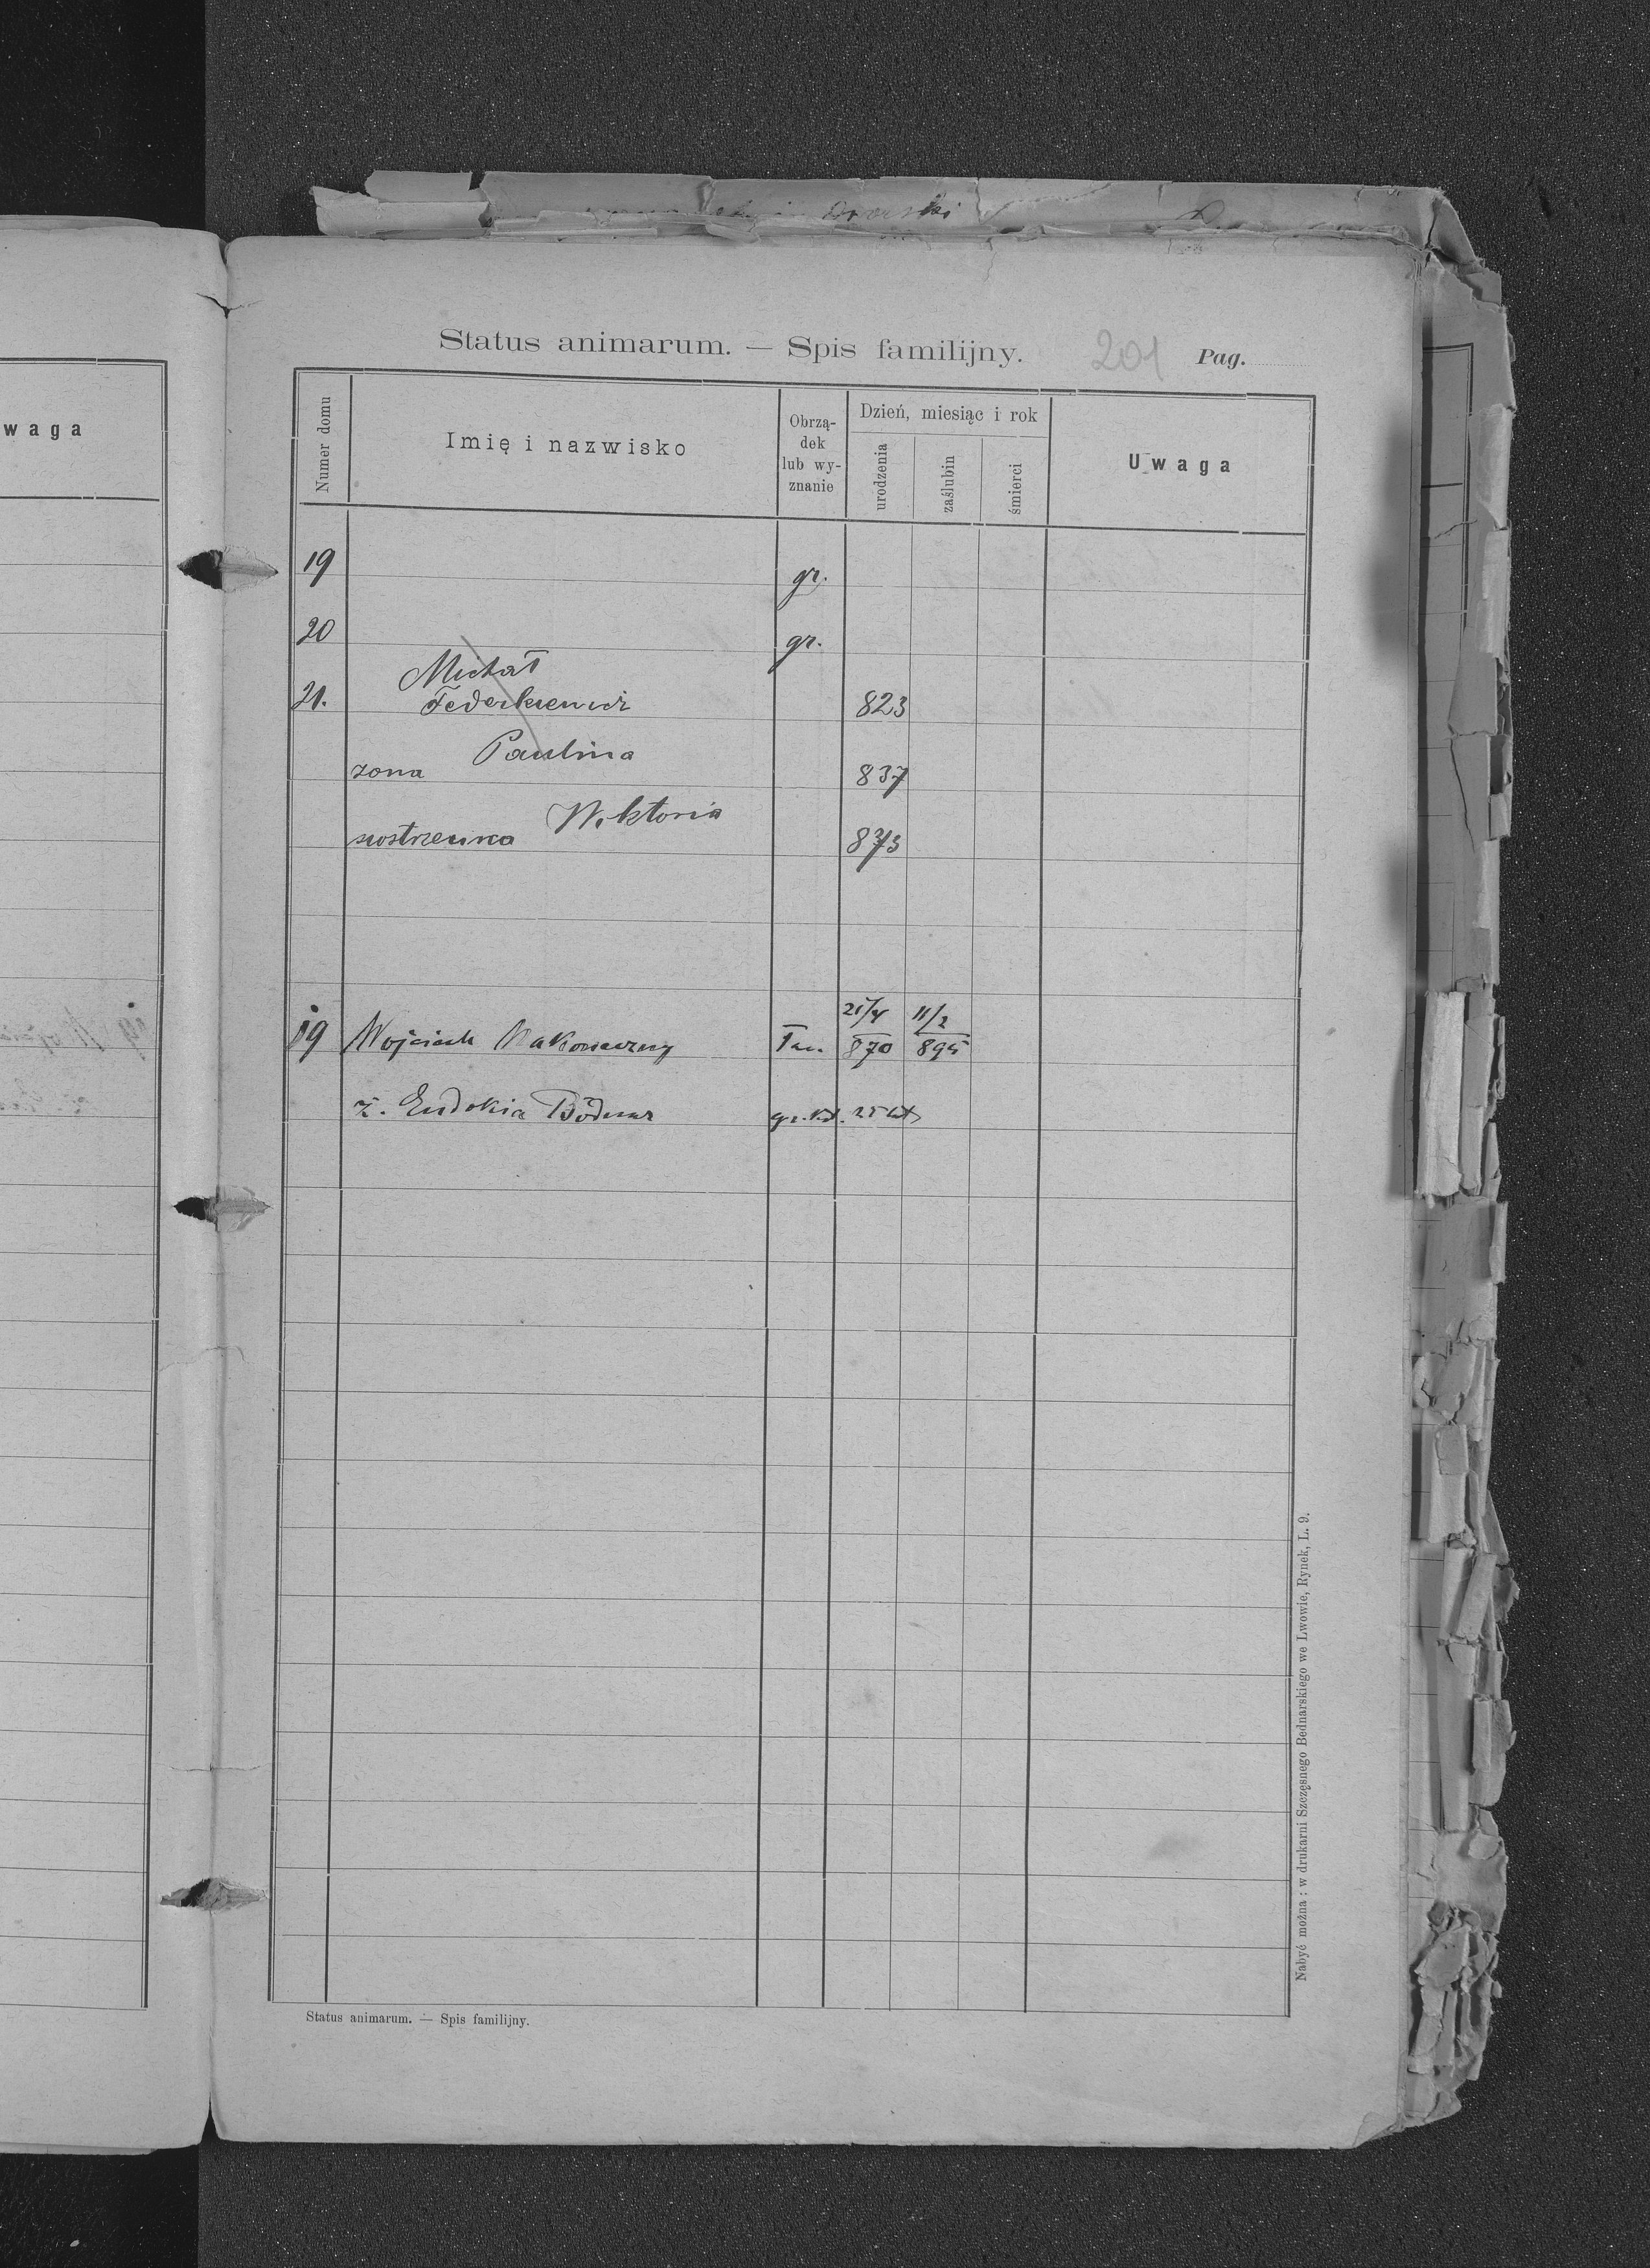 Dworski
waga
Status animarum. — Spis familijny. 201 Pag.
Numer domu
Imię i nazwisko
Obrzą-
dek
lub wy-
znanie
Dzień, miesiąc i rok
urodzenia
zaślubin
śmierci
Uwaga
19 gr.
20 gr.
Michał
21. Federkiewicz 823
Paulina
zona 837
Wiktoria
siostrzenica 873
21/4 11/2
19 Wojciech Nakoneczny łac. 870 895
ż. Eudokia Bodnar gr. kt. 25 lat
Nabyć można : w drukarni Szczęsnego Bednarskiego we Lwowie, Rynek, L. 9.
Status animarum. — Spis familijny.